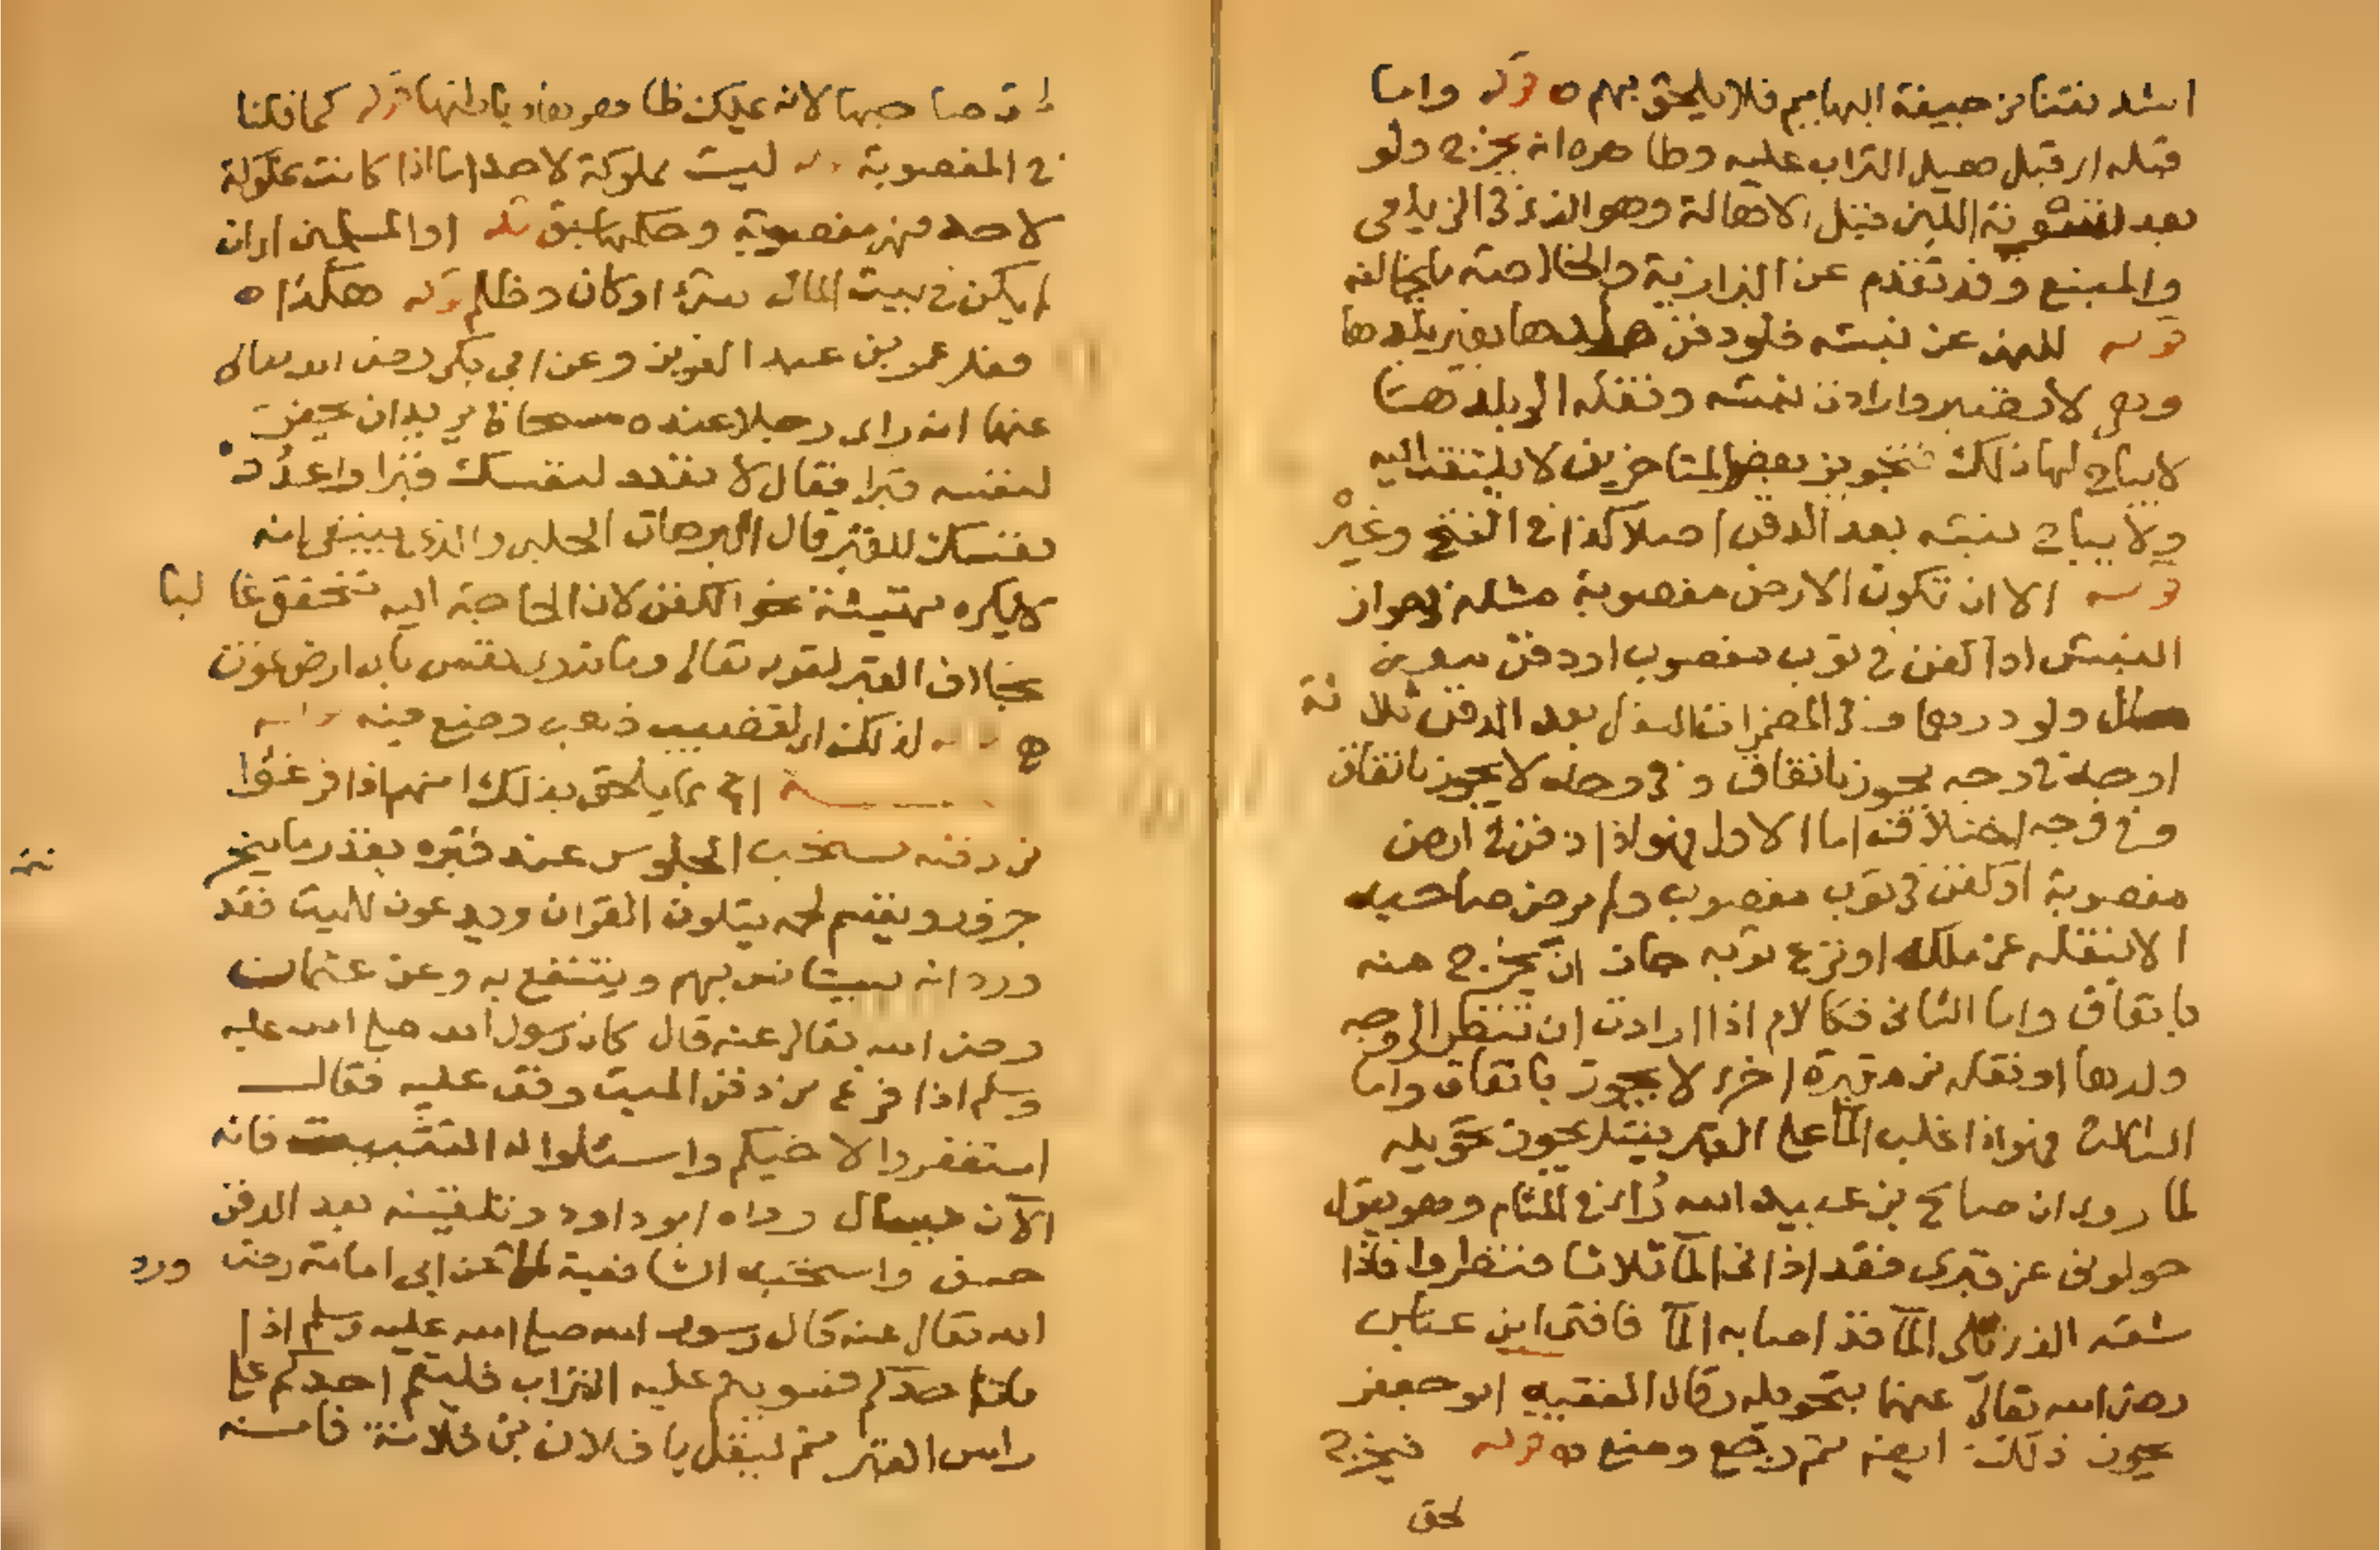 اشد نتنا من جيفة البهايم فلا يلحق بهم ٥ قوله واما
قبله اي قبل هيل التراب عليه وظاهره انه يخرج ولو
بعد تسوية اللبن قبل الاهالة وهو الذي في الزيلعي
والمنبع وقد تقدم عن البزازية والخلاصة ما يخالفه
قوله للنهي عن نبشه فلو دفن ولدها بغير بلدها
وهي لا تصبر وارادت نبشه ونقله الى بلدها
لا يباح لها ذلك فتجويز بعض المتاخرين لا يلتفت اليه
ولا يباح نبشه بعد الدفن اصلا كذا في الفتح وغيره
قوله الا ان تكون الارض مغصوبة مثله في جواز
النبش اذا كفن في ثوب مغصوب او دفن معه
مال ولو درهما وفي المضمرات النقل بعد الدفن ثلاثة
اوجه في وجه يجوز باتفاق وفي وجه لا يجوز باتفاق
وفي وجه اختلاف اما الاول فهو اذا دفن في ارض
مغصوبة او كفن في ثوب مغصوب ولم يرض صاحبه
الا بنقله عن ملكه او نزع ثوبه جاز ان يخرج منه
باتفاق واما الثاني فكالام اذا ارادت ان تنظر الى وجه
ولدها او نقله من مقبرة اخرى لا يجوز باتفاق واما
الثالث فهو اذا غلب الما على القبر فقيل يجوز تحويله
لما روي ان صالح بن عبيد الله رأي في المنام وهو يقول
حولوني عن قبري فقد اذاني الما ثلاثا فنظروا فاذا
شقه الذي تلى الما قد اصابه الما فافتى ابن عباس
رضي الله تعالى عنهما بتحويله وقال الفقيه ابو جعفر
يجوز ذلك ايضا ثم رجع ومنع ٥ قوله فيخرج
لحق
لحق صاحبها لانه يملك ظاهرها وباطنها قوله كما قلنا
في المغصوبة قوله ليست مملوكة لاحد اما اذا كانت مملوكة
لاحد فهي مغصوبة وحكمها سبق قوله او المسلمين اي ان
لم يكن في بيت المال شيء او كان وظلم قوله هكذا ٥
فعله عمر بن عبد العزيز وعن ابي بكر رضي الله تعالى
عنهما انه راى رجلا عنده مسحاة يريد ان يحفر
لنفسه قبرا فقال لا تعدد لنفسك قبرا واعدد
نفسك للقبر قال البرهان الحلبي والذي ينبغي انه
لا يكره تهيئة نحو الكفن لان الحاجة اليه تتحقق غالبا
بخلاف القبر لقوله تعالى وما تدري نفس باي ارض تموت
لذلك اي لقضيب ذهب وضع فيه
مما يلحق بذلك انهم اذا فرغوا
من دفنه يستحب الجلوس عند قبره بقدر ما ينحر
جزور ويقسم لحمه يتلون القران ويدعون للميت فقد
ورد انه يستانس بهم وينتفع به وعن عثمان
رضي الله تعالى عنه قال كان رسول الله صلى الله عليه
وسلم اذا فرغ من دفن الميت وقف عليه فقال
استغفروا لاخيكم واسئلوا له التثبيت فانه
الآن يسال رواه ابو داود وتلقينه بعد الدفن
حسن واستحبه الشافعية لما عن ابي امامة رضي ورد
الله تعالى عنه قال رسول الله صلى الله عليه وسلم اذا
مات احدكم فسويتم عليه التراب فليقم احدكم على
راس القبر ثم ليقل يا فلان بن فلانة فانه